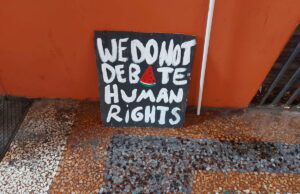 WE DO NOT
DEBATE
HUMAN
RIGHTS